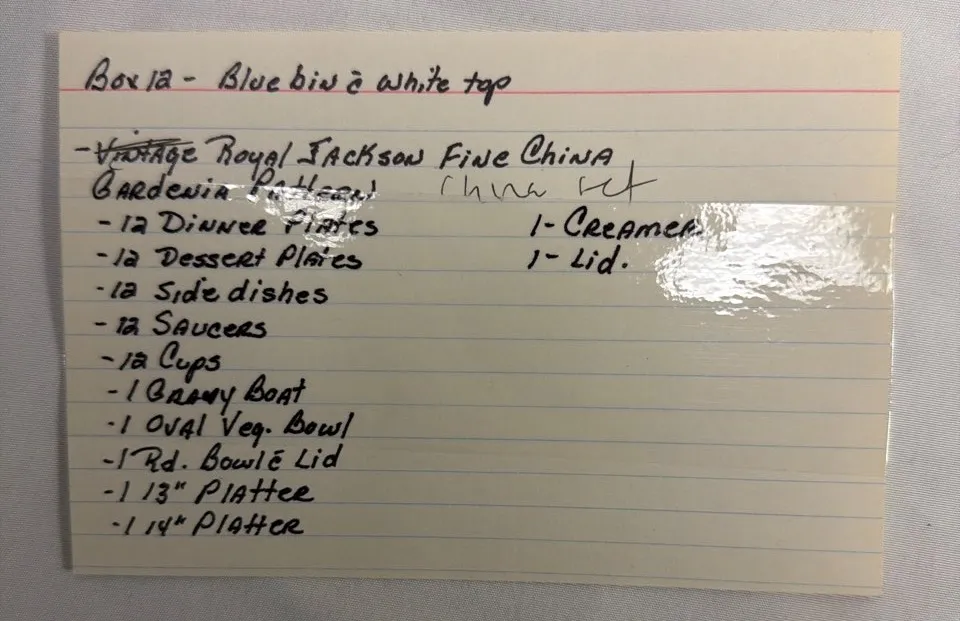 Box 12 - Blue bin c̄ white top
- Vintage Royal Jackson Fine China
Gardenia Pattern! china set
- 12 Dinner Plates
- 12 Dessert Plates
- 12 Side dishes
- 12 Saucers
- 12 Cups
- 1 Gravy Boat
- 1 Oval Veg. Bowl
- 1 Rd. Bowl c̄ Lid
- 1 13" Platter
- 1 14" Platter
1- Creamer
1- Lid.